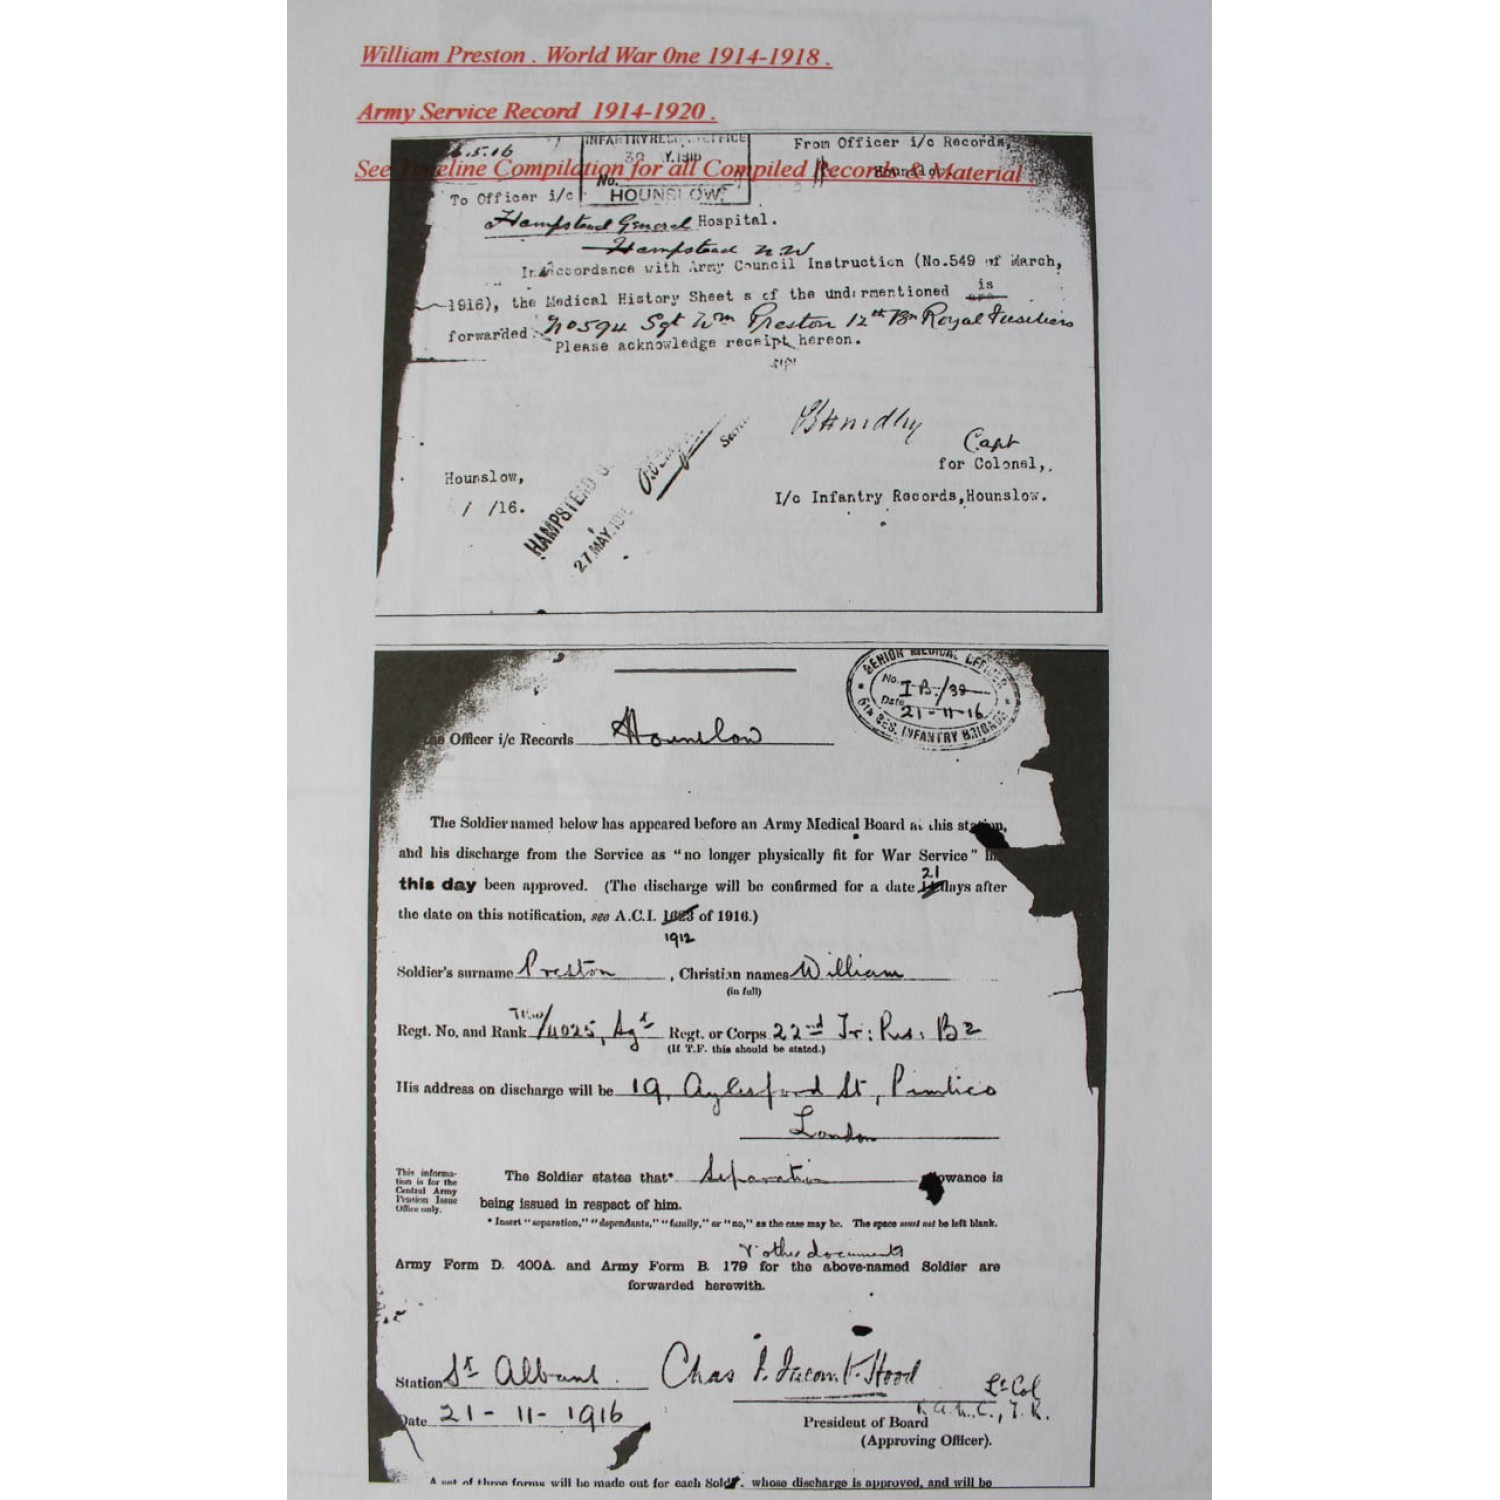 William Preston . World War One 1914-1918 .
Army Service Record 1914-1920 .
See Timeline Compilation for all Compiled Records & Material .
.5.16
INFANTRY RECORD OFFICE
No.
HOUNSLOW.
From Officer i/c Records,
Hounslow.
To Officer i/c
Hampstead General Hospital.
Hampstead N.W
In accordance with Army Council Instruction (No.549 of March,
1916), the Medical History Sheet s of the undermentioned is are
forwarded. No 594 Sgt Wm Preston 12th Bn Royal Fusiliers
Please acknowledge receipt hereon.
Capt
for Colonel,.
Hounslow,
/ /16.
I/c Infantry Records,Hounslow.
HAMPSTEAD G
27 MAY.191
SENIOR MEDICAL OFFICER
No. I B./39
Date 21-11-16
RES. INFANTRY BRIGADE
the Officer i/c Records Hounslow
The Soldier named below has appeared before an Army Medical Board at this station,
and his discharge from the Service as "no longer physically fit for War Service" has
this day been approved. (The discharge will be confirmed for a date 21 days after
the date on this notification, see A.C.I. 1023 of 1916.)
1912
Soldier's surname Preston, Christian names William
(in full)
Regt. No. and Rank /4025, Sgt Regt. or Corps 22nd Tr: Res: Bn
(If T.F. this should be stated.)
His address on discharge will be 19, Aylesford St, Pimlico
London
This information is for the Central Army Pension Issue Office only.
The Soldier states that* Separation allowance is
being issued in respect of him.
* Insert "separation," "dependants," "family," or "no," as the case may be. The space must not be left blank.
& other documents
Army Form D. 400A. and Army Form B. 179 for the above-named Soldier are
forwarded herewith.
Station St Albans. Chas Hood Lt Col
R.A.M.C., T.F.
Date 21-11-1916
President of Board
(Approving Officer).
A set of three forms will be made out for each Soldier, whose discharge is approved, and will be